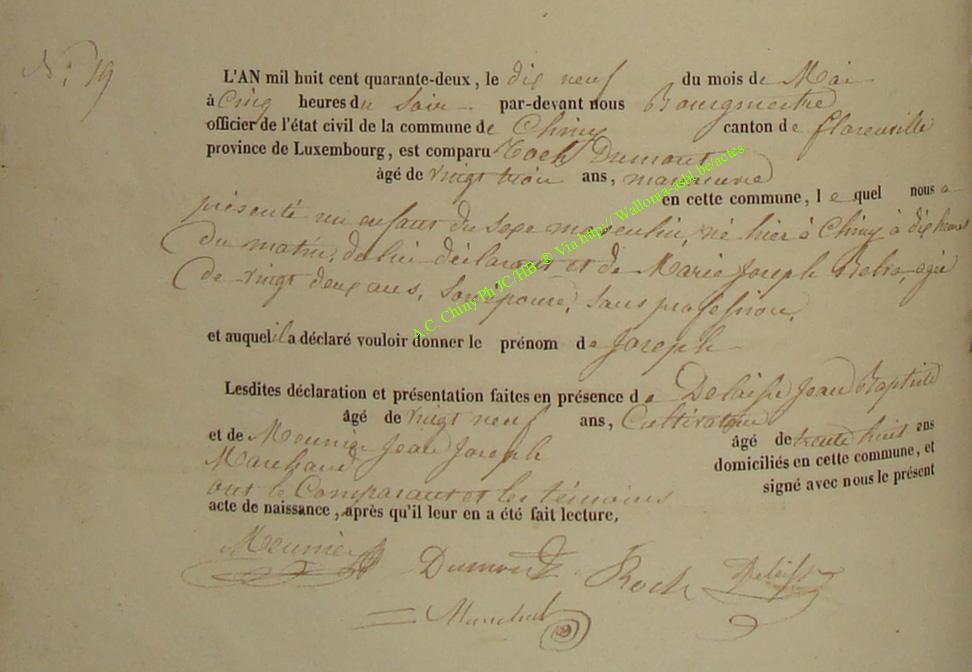 N° 19
L'AN mil huit cent quarante-deux, le dix neuf du mois de Mai
à Cinq heures du Soir par-devant nous Bourgmestre
officier de l'état civil de la commune de Chiny canton de florenville
province de Luxembourg, est comparu Roch Dumont
âgé de vingt trois ans, manoeuvre
en cette commune, l e quel nous a
présenté un enfant du sexe masculin, né hier à Chiny à dix heures
du matin, de lui déclarant et de Marie Joseph agée
de vingt deux ans, Son épouse, sans profession,
et auquel il a déclaré vouloir donner le prénom de Joseph
Lesdites déclaration et présentation faites en présence de Delaisse Jean Baptiste
âgé de vingt neuf ans, Cultivateur
et de Meunier Jean Joseph âgé de trente huit ans
Marchand domiciliés en cette commune, et
ont le Comparant et les témoins signé avec nous le présent
acte de naissance, après qu'il leur en a été fait lecture,
Meunier Dumont Roch Delaisse
A.C. Chiny Ph JC/HB ® Via http://Wallonia-asbl.be/actes